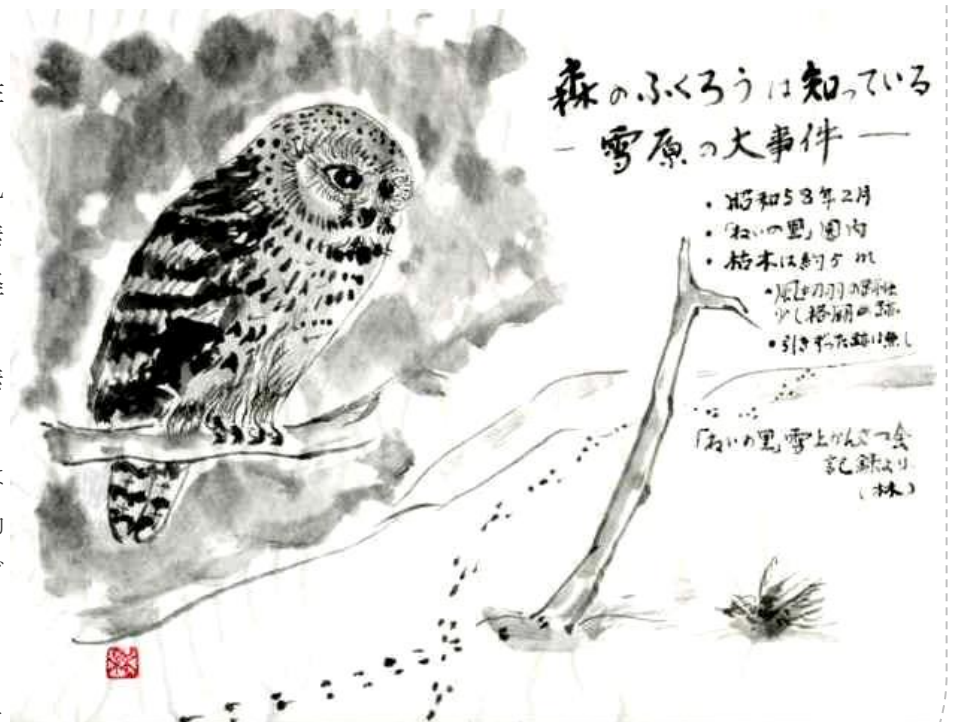 森のふくろうは知っている
― 雪原の大事件 ―
・昭和58年2月
・「ねいの里」園内
・枯木は約5m
・風切羽の
少し格闘の跡
・引きずった跡は無し
「ねいの里」雪上かんさつ会
記録より
(林)